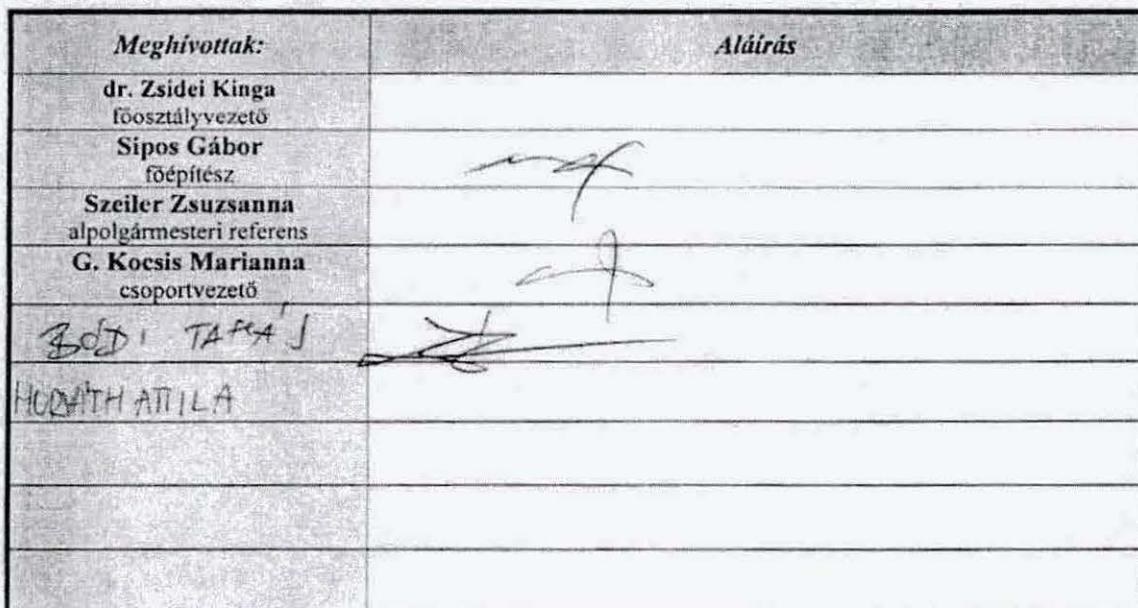 Meghívottak: Aláírás
dr. Zsidei Kinga
főosztályvezető
Sipos Gábor
főépítész
Szeiler Zsuzsanna
alpolgármesteri referens
G. Kocsis Marianna
csoportvezető
BÓDI TAMÁS
HORVÁTH ATTILA